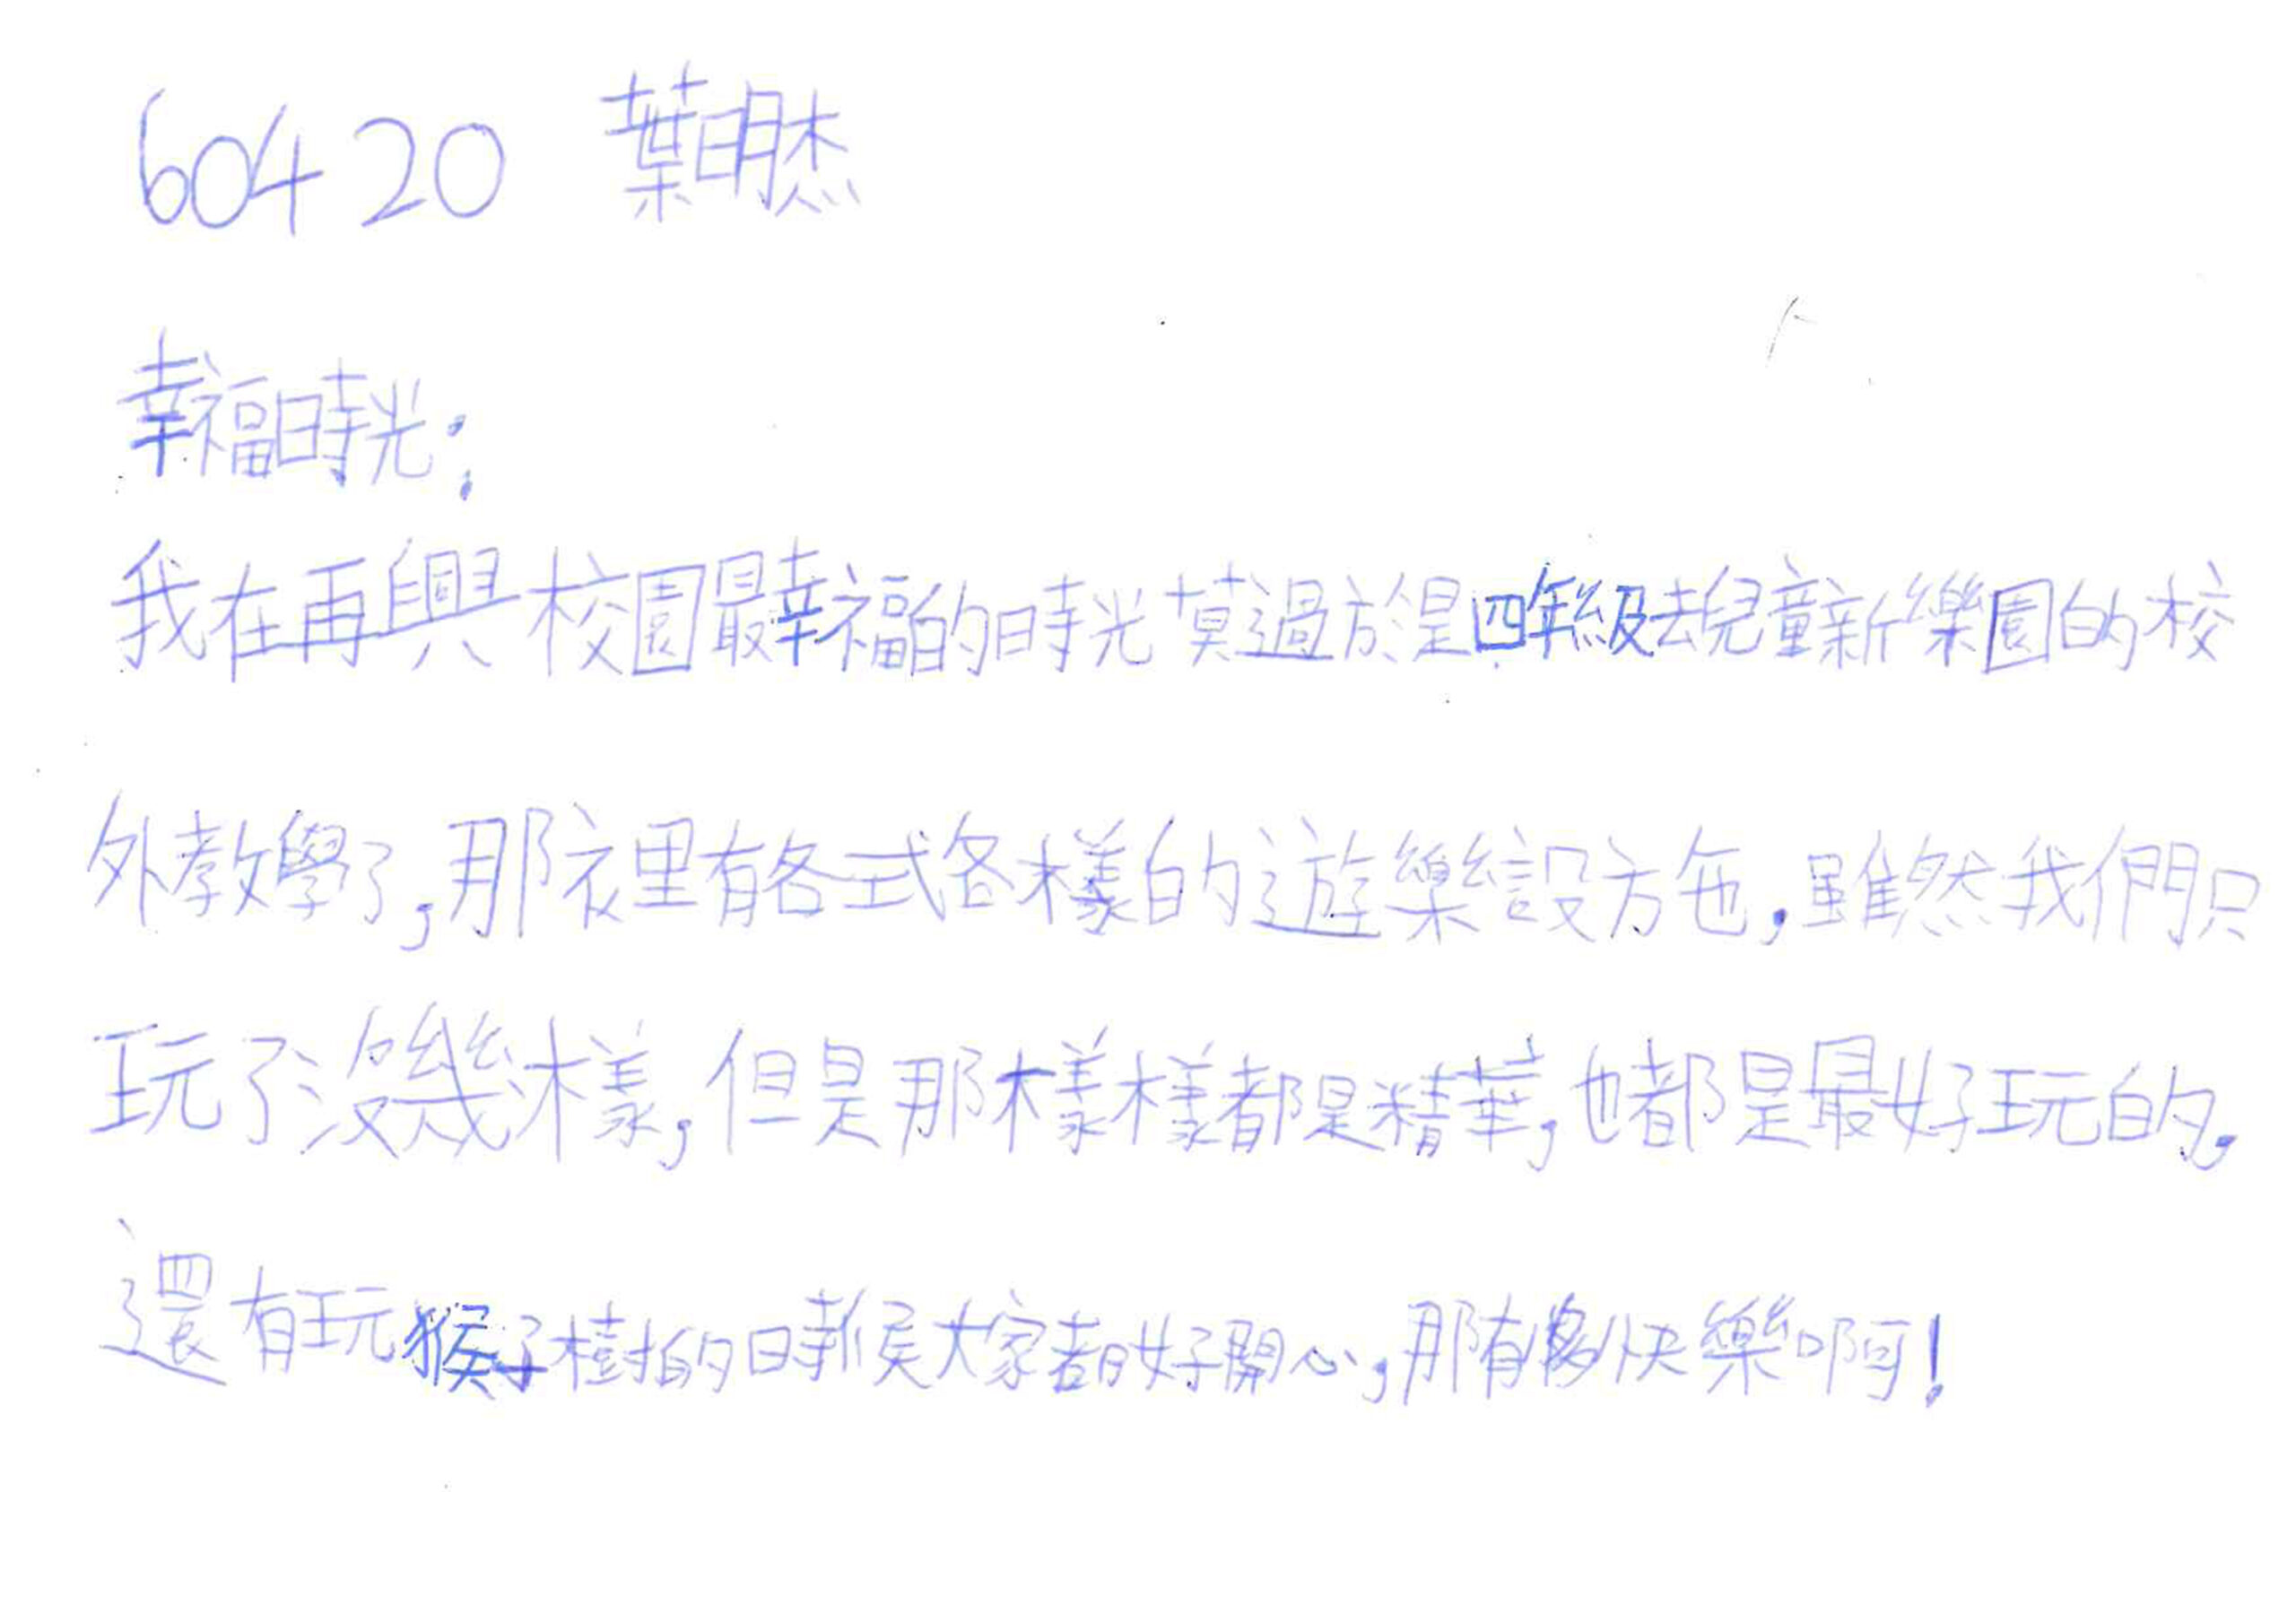 60420 葉明杰
幸福時光:
我在再興校園最幸福的時光莫過於是四年級去兒童新樂園的校
外教學了,那裡有各式各樣的遊樂設施,雖然我們只
玩了沒幾樣,但是那樣樣都是精華,也都是最好玩的,
還有玩猴子樹的時候大家都好開心,那有多快樂啊!